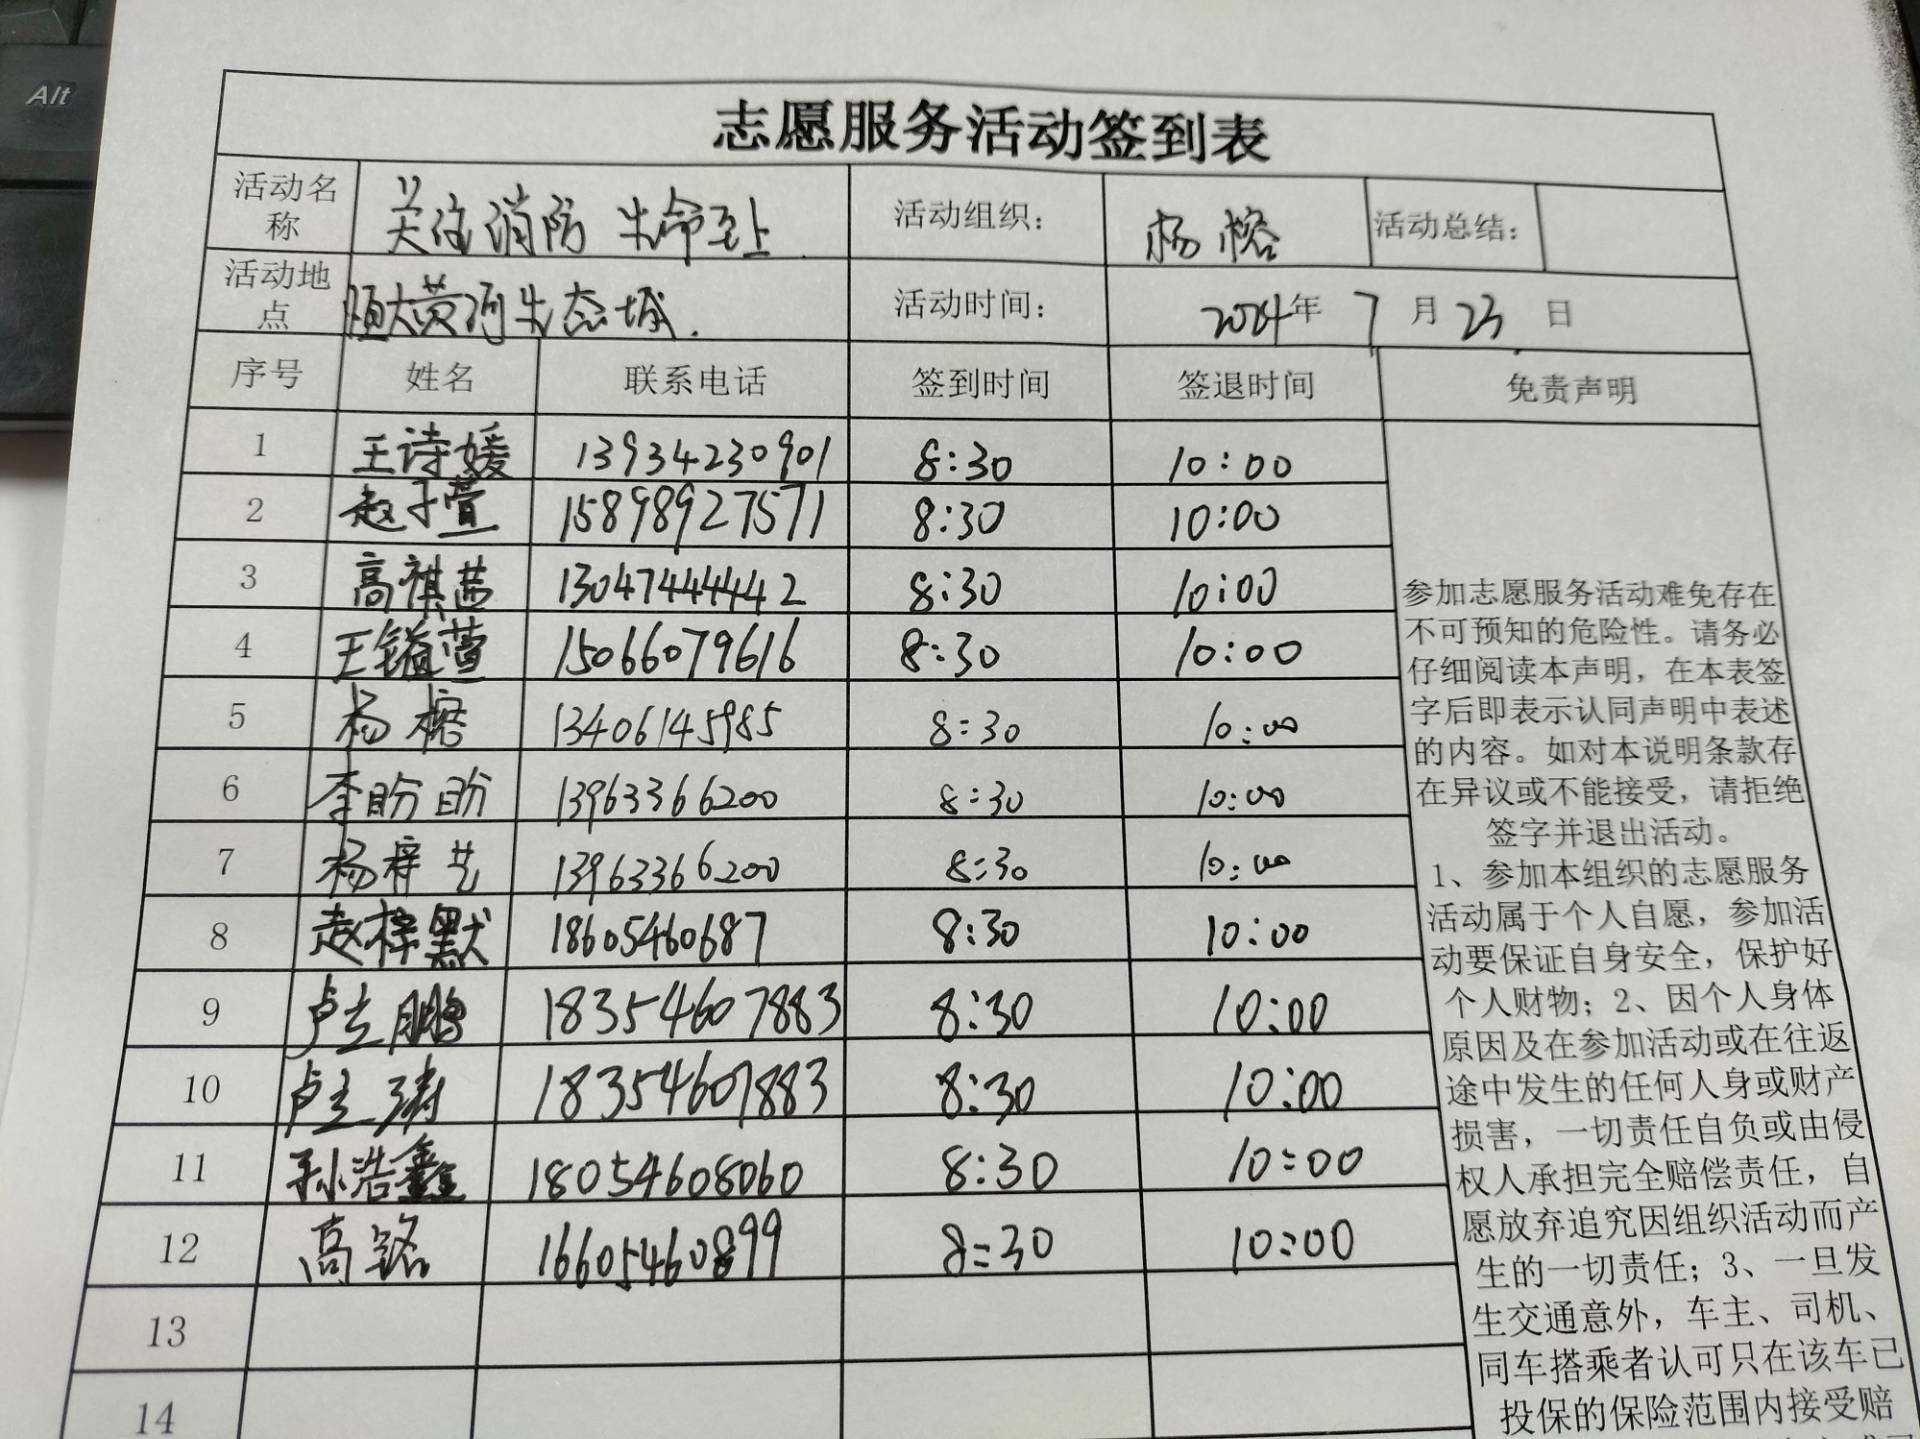 Alt
志愿服务活动签到表
活动名称 关注消防 生命至上 活动组织: 杨榕 活动总结:
活动地点 恒大黄河生态城. 活动时间: 2024年 7月 23日
序号 姓名 联系电话 签到时间 签退时间 免责声明
1 王诗媛 13934230901 8:30 10:00
2 赵子萱 15898927571 8:30 10:00
3 高祺茜 13047444442 8:30 10:00
4 王镒萱 15066079616 8:30 10:00
5 杨榕 13406145985 8:30 10:00
6 李盼盼 13963366200 8:30 10:00
7 杨梓艺 13963366200 8:30 10:00
8 赵梓默 18605460687 8:30 10:00
9 卢立鹏 18354607883 8:30 10:00
10 卢立 18354607883 8:30 10:00
11 孙浩鑫 18054608060 8:30 10:00
12 高铭 16605460899 8:30 10:00
13
14
参加志愿服务活动难免存在
不可预知的危险性。请务必
仔细阅读本声明，在本表签
字后即表示认同声明中表述
的内容。如对本说明条款存
在异议或不能接受，请拒绝
签字并退出活动。
1、参加本组织的志愿服务
活动属于个人自愿，参加活
动要保证自身安全，保护好
个人财物；2、因个人身体
原因及在参加活动或在往返
途中发生的任何人身或财产
损害，一切责任自负或由侵
权人承担完全赔偿责任，自
愿放弃追究因组织活动而产
生的一切责任；3、一旦发
生交通意外，车主、司机、
同车搭乘者认可只在该车已
投保的保险范围内接受赔